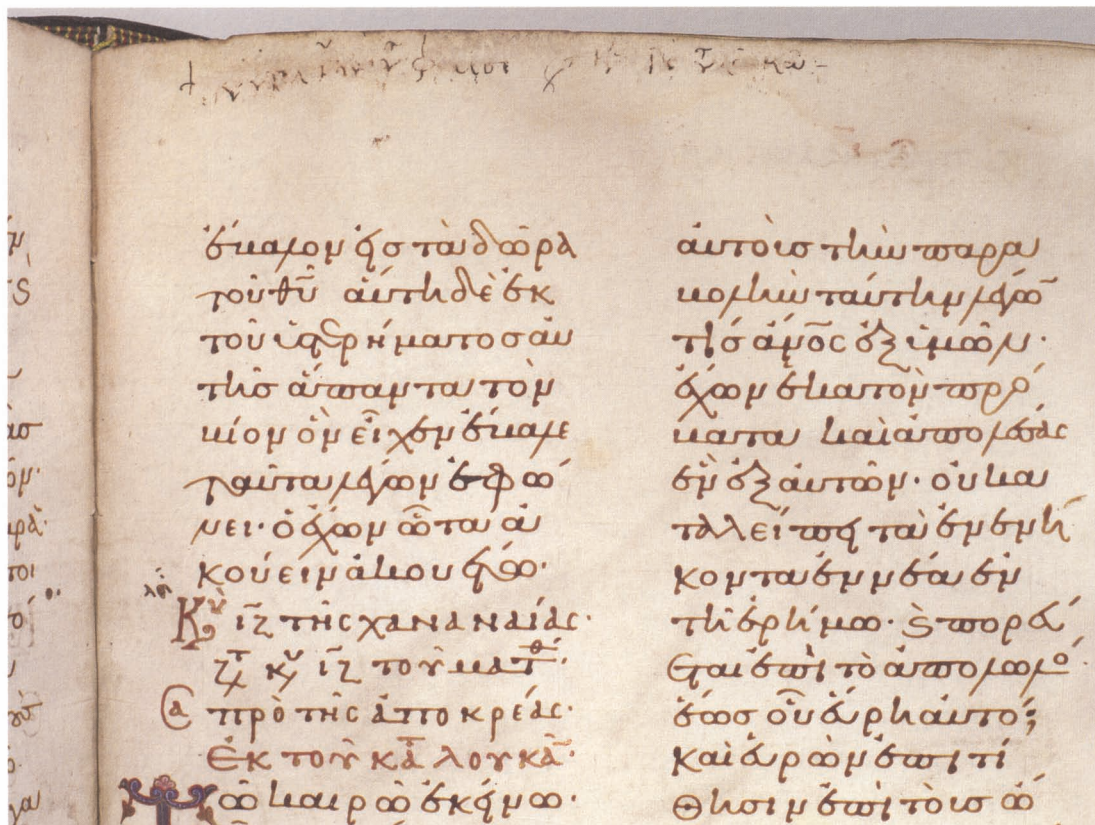 ἔβαλον εἰς τὰ δῶρα
τοῦ θῦ αὕτη δὲ ἐκ
τοῦ ὑστερήματος αὐ
τῆς ἅπαντα τὸν
βίον ὃν εἶχεν ἔβαλε
ταῦτα λέγων ἐφώ
νει· ὁ ἔχων ὦτα ἀ
κούειν ἀκουέτω·
Κυ ιζ τῆς χαναναίας·
ζτ κυ ιζ τοῦ ματθ·
Σα πρὸ τῆς ἀποκρέας·
ἐκ τοῦ κατ λουκᾶ·
Τῶ καιρῶ ἐκείνω·
αὐτοῖς τὴν παρα
βολὴν ταύτην λέγω
τίς ἄνος ἐξ ὑμῶν·
ἔχων ἑκατὸν πρό
βατα καὶ ἀπολέσας
ἓν ἐξ αὐτῶν· οὐ κα
ταλείπει τὰ ἐνενή
κοντα ἐννέα ἐν
τῆ ἐρήμω· ϗ πορεύ
εται ἐπὶ τὸ ἀπολωλό·
ἕως οὗ εὕρη αὐτό;
καὶ εὑρὼν ἐπιτί
θησιν ἐπὶ τοὺς ὤ